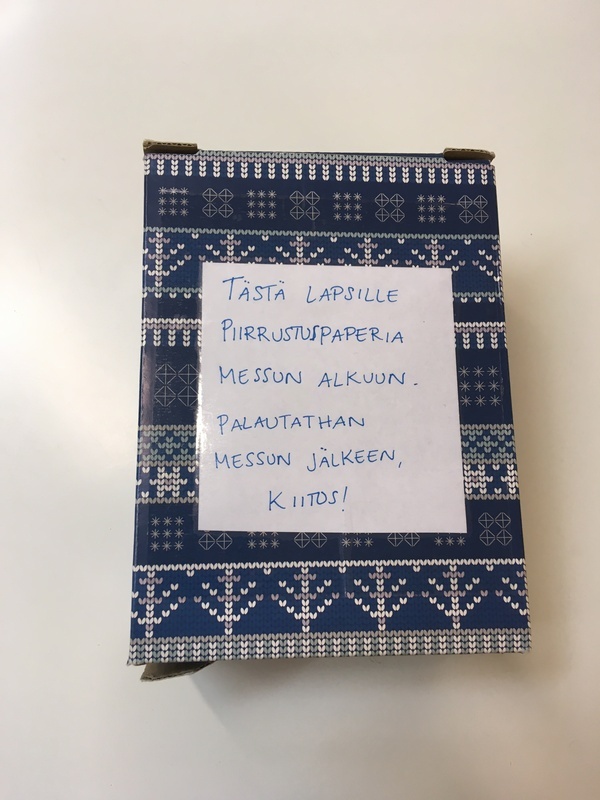 TÄSTÄ LAPSILLE
PIIRRUSTUSPAPERIA
MESSUN ALKUUN.
PALAUTATHAN
MESSUN JÄLKEEN,
KIITOS!